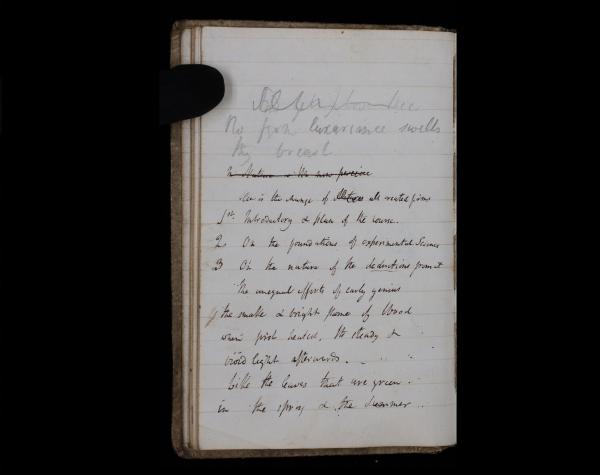 No firm luxuriance swells
thy breast
In Nature we now perceive
He is the change of all created forms
1st. Introductory & plan of the course.
2 On the foundations of experimental Science
3 On the nature of the deductions from it
The unequal efforts of early genius
the smoke & bright flame of Wood
when first heated, the steady &
vivid light afterwards.
Like the leaves that are green
in the spring & the Summer